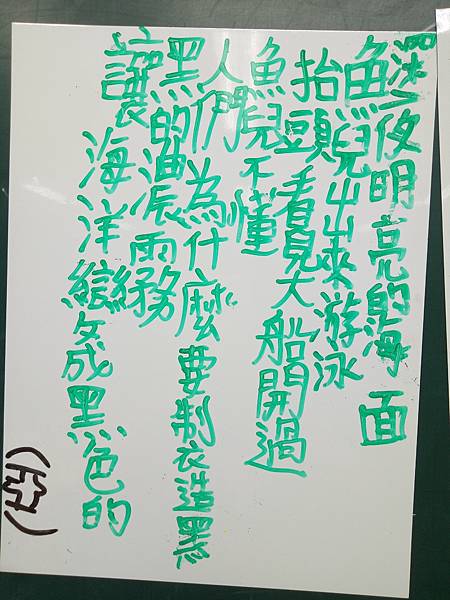 深夜明亮的海面
魚兒出來游泳
抬頭看見大船開過
魚兒不懂
人們為什麼要製造黑
黑的油霧
讓海洋變成黑色的